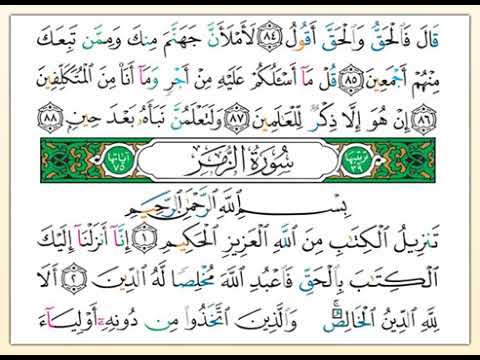 قَالَ فَٱلْحَقُّ وَٱلْحَقَّ أَقُولُ ٨٤ لَأَمْلَأَنَّ جَهَنَّمَ مِنكَ وَمِمَّن تَبِعَكَ
مِنْهُمْ أَجْمَعِينَ ٨٥ قُلْ مَآ أَسْـَٔلُكُمْ عَلَيْهِ مِنْ أَجْرٍ وَمَآ أَنَا۠ مِنَ ٱلْمُتَكَلِّفِينَ
٨٦ إِنْ هُوَ إِلَّا ذِكْرٌ لِّلْعَٰلَمِينَ ٨٧ وَلَتَعْلَمُنَّ نَبَأَهُۥ بَعْدَ حِينٍۭ ٨٨
ترتيبها ٣٩ سُورَةُ الزُّمَرِ آياتها ٧٥
بِسْمِ ٱللَّهِ ٱلرَّحْمَٰنِ ٱلرَّحِيمِ
تَنزِيلُ ٱلْكِتَٰبِ مِنَ ٱللَّهِ ٱلْعَزِيزِ ٱلْحَكِيمِ ١ إِنَّآ أَنزَلْنَآ إِلَيْكَ
ٱلْكِتَٰبَ بِٱلْحَقِّ فَٱعْبُدِ ٱللَّهَ مُخْلِصًا لَّهُ ٱلدِّينَ ٢ أَلَا
لِلَّهِ ٱلدِّينُ ٱلْخَالِصُ ۚ وَٱلَّذِينَ ٱتَّخَذُوا۟ مِن دُونِهِۦٓ أَوْلِيَآءَ